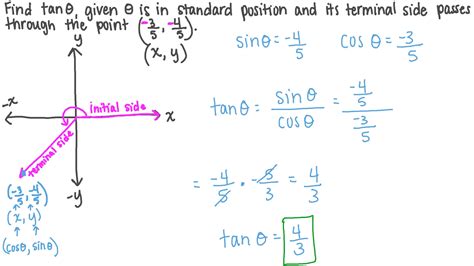 Find tanθ, given θ is in standard position and its terminal side passes
through the point (-3/5, -4/5).
(x, y)
y
-x
x
-y
initial side
terminal side
(-3/5, -4/5)
(x, y)
(cosθ, sinθ)
sinθ = -4/5 cosθ = -3/5
tanθ = sinθ/cosθ = (-4/5)/(-3/5)
= -4/5 · -5/3 = 4/3
tanθ = 4/3